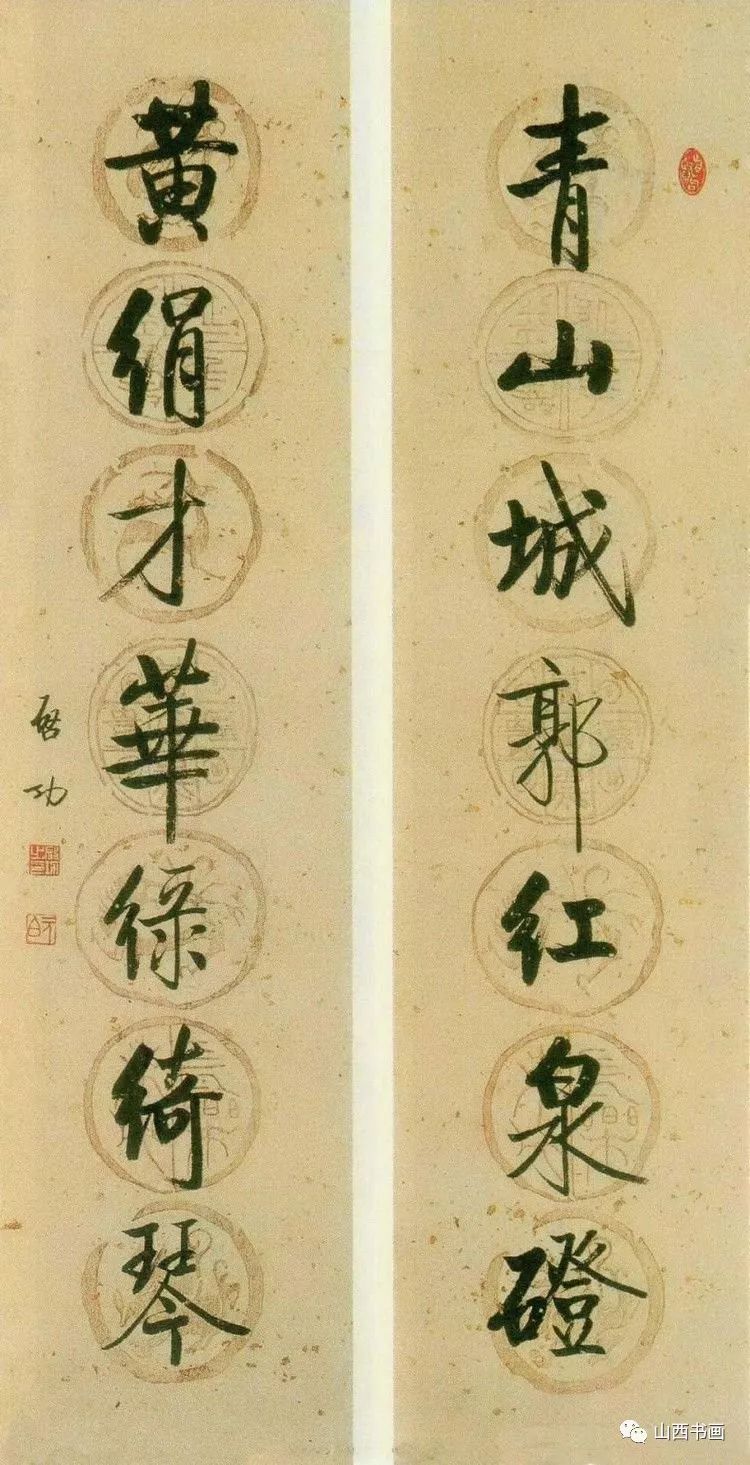 青山城郭红泉磴
黃絹才華綠綺琴
啓功
山西书画